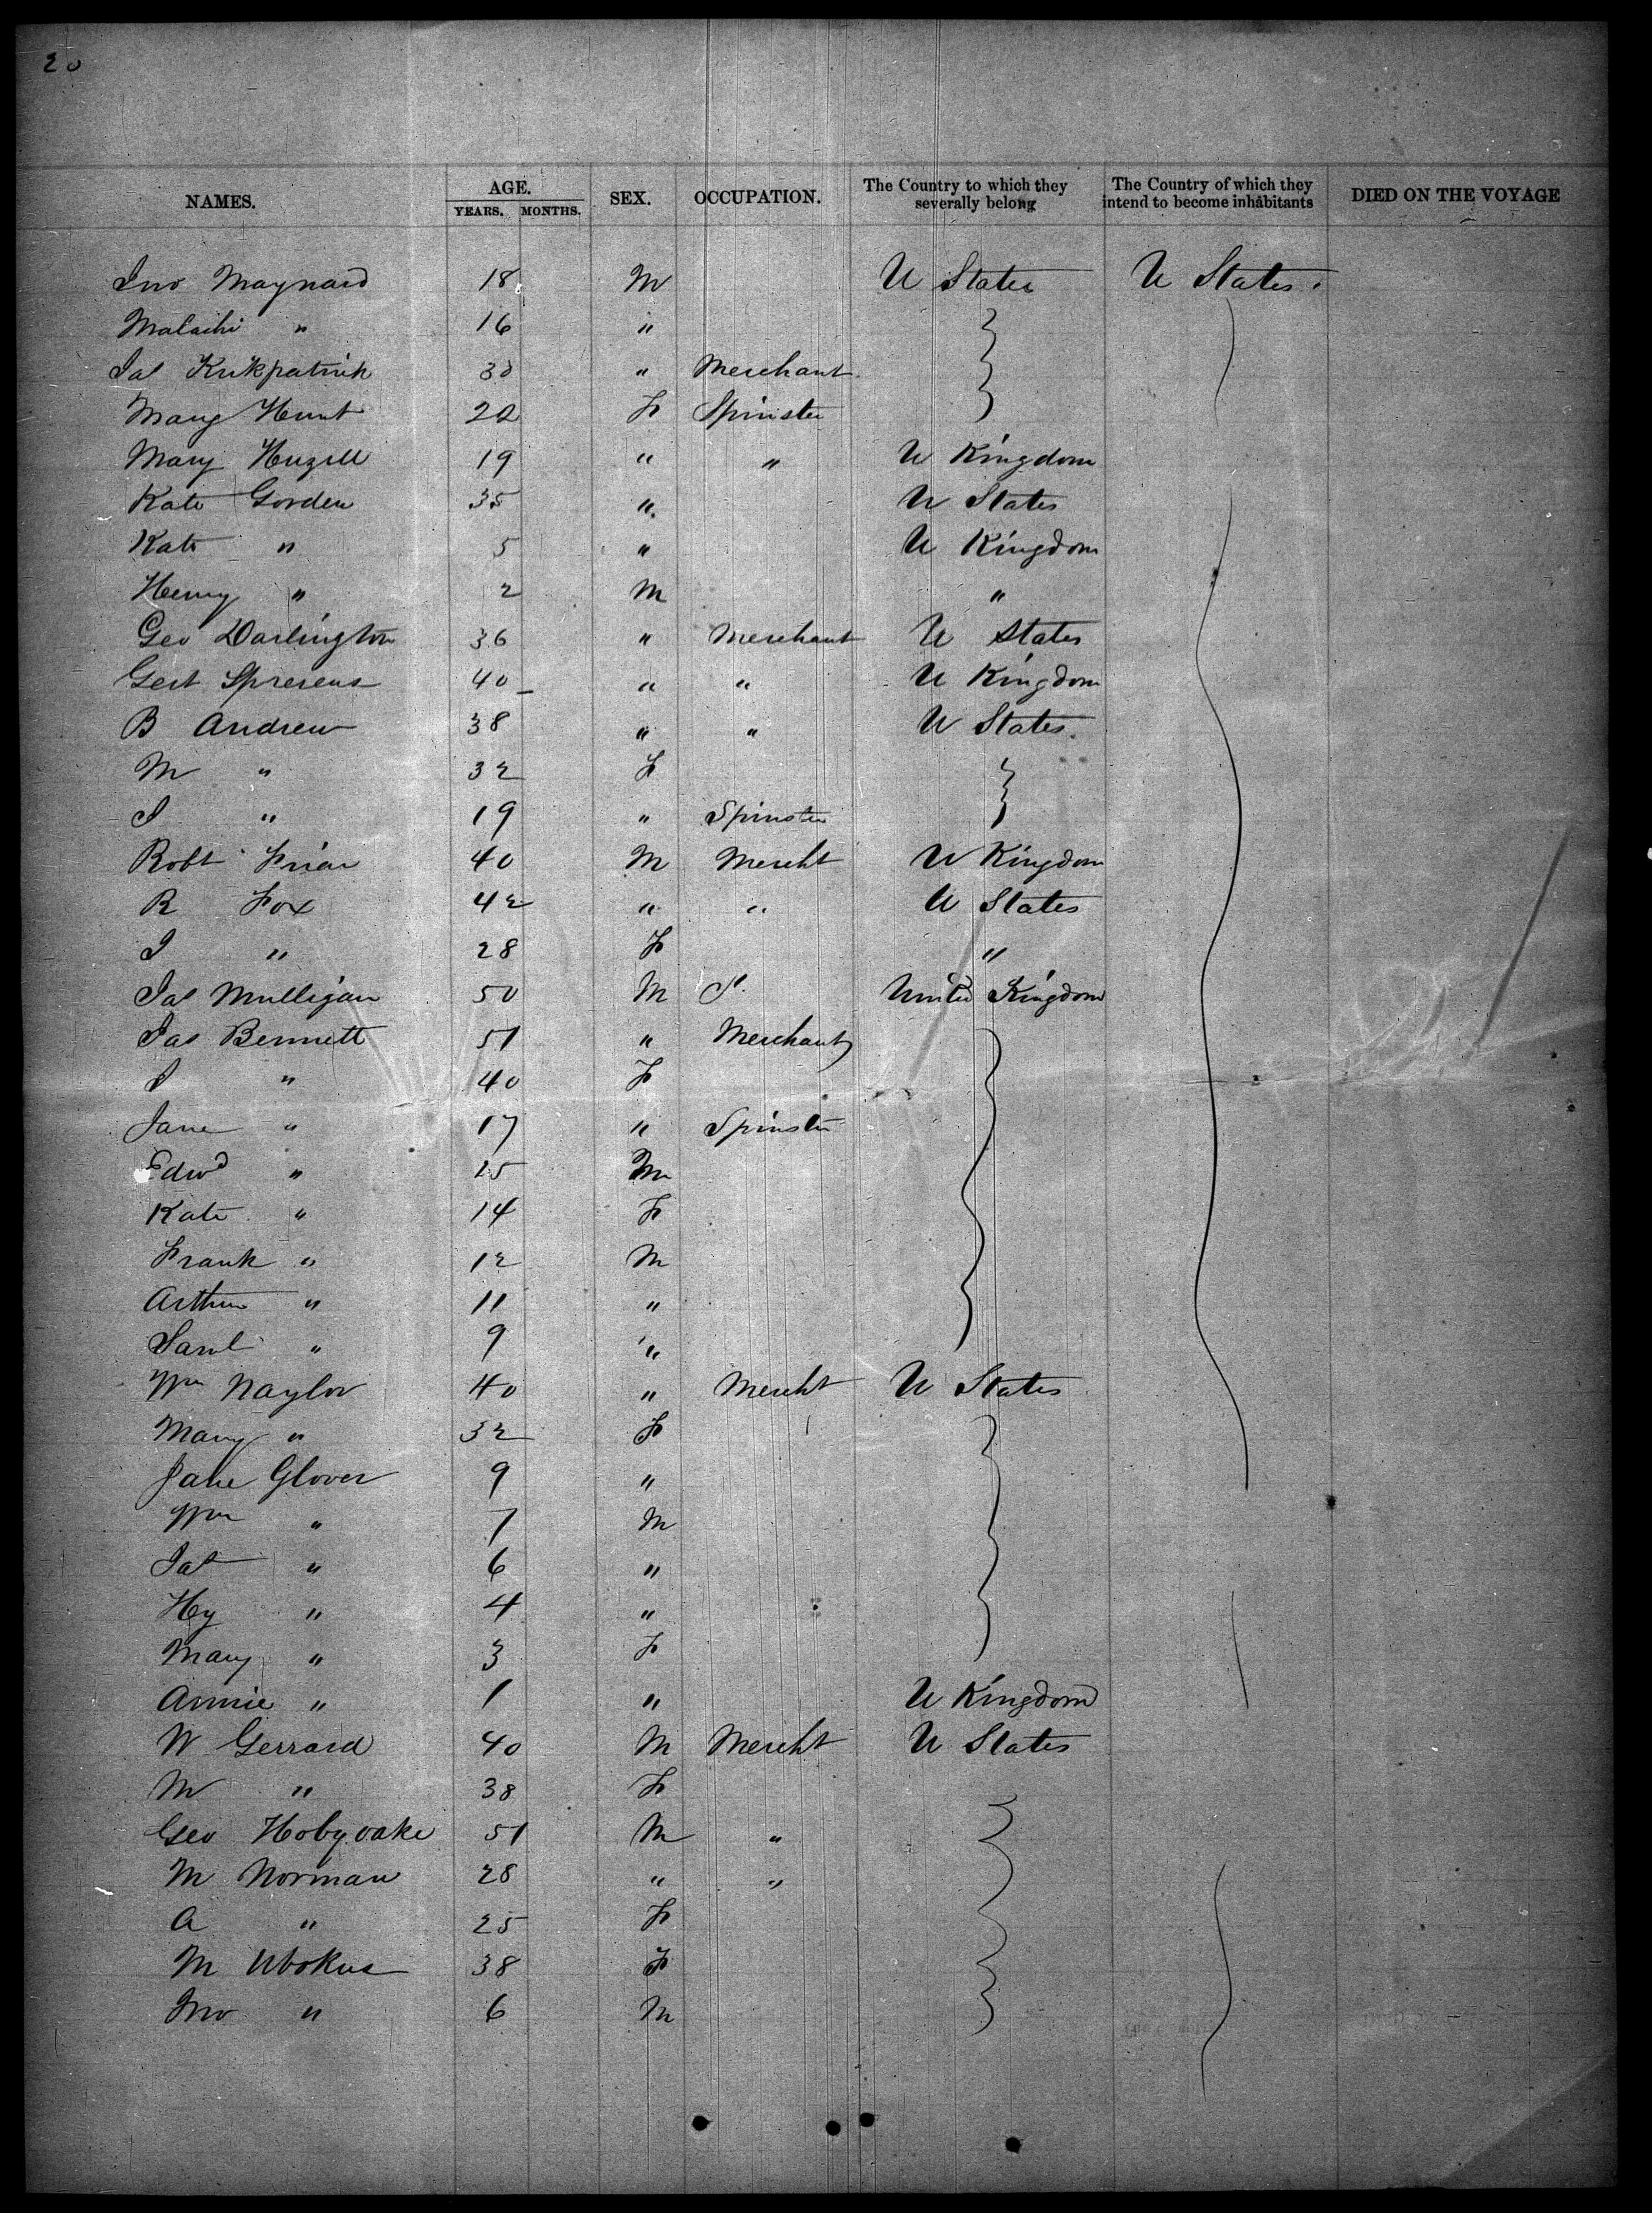 20
NAMES. AGE. YEARS. MONTHS. SEX. OCCUPATION. The Country to which they severally belong The Country of which they intend to become inhabitants DIED ON THE VOYAGE
Jno Maynard 18 M U States U States.
Malachi " 16 "
Jas Kirkpatrick 30 " Merchant
Mary Hunt 22 F Spinster
Mary 19 " " U Kingdom
Kate Gorden 35 " U States
Kate " 5 " U Kingdom
Henry " 2 M "
Geo Darlington 36 " Merchant U States
Gert 40 " " U Kingdom
B Andrew 38 " " U States.
M " 32 F
J " 19 " Spinster
Robt Friar 40 M Mercht U Kingdom
R Fox 42 " " U States
J " 28 F "
Jas Mulligan 50 M United Kingdom
Jas Bennett 51 " Merchant
J " 40 F
Jane " 17 " Spinster
Edwd " 15 M
Kate " 14 F
Frank " 12 M
Arthur " 11 "
Saml " 9 "
Wm Naylor 40 " Mercht U States
Mary " 32 F
Jane Glover 9 "
Wm " 7 M
Jas " 6 "
Hy " 4 "
Mary " 3 F
Annie " 1 " U Kingdom
W Gerrard 40 M Mercht U States
M " 38 F
Geo Holyoake 51 M "
M Norman 28 " "
A " 25 F
M 38 F
Jno " 6 M